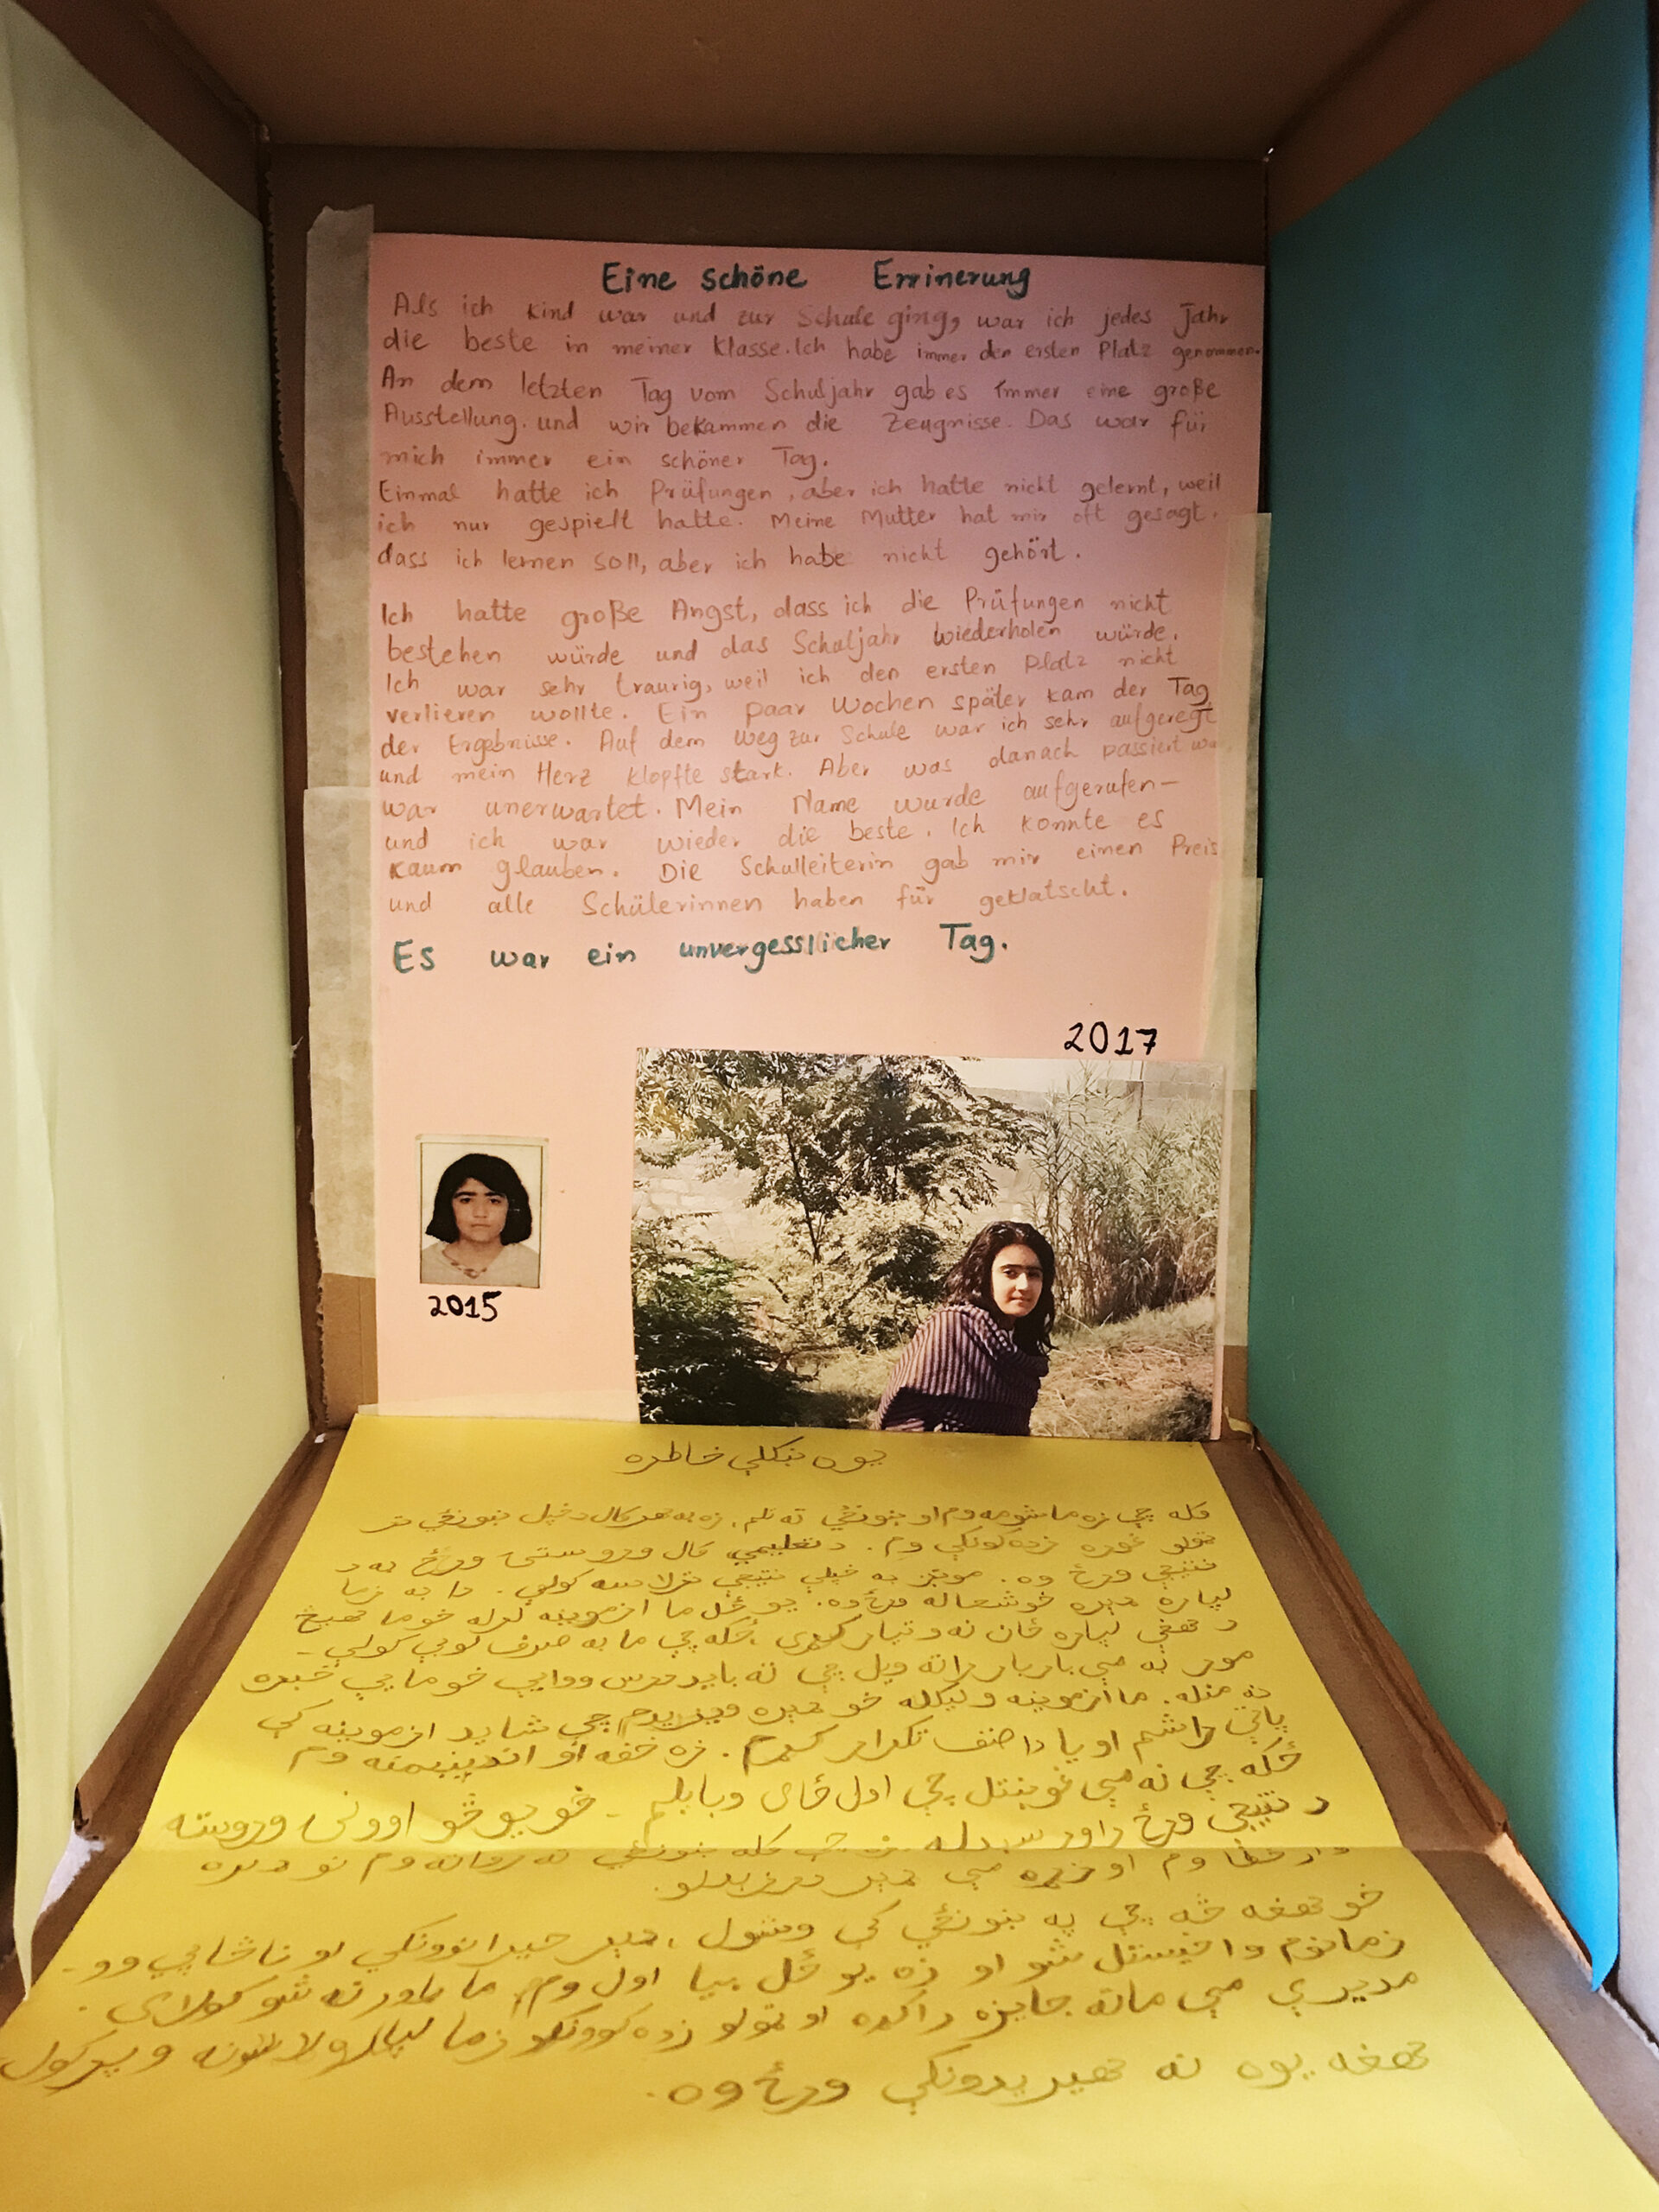 Eine schöne Errinerung
Als ich kind war und zur Schule ging, war ich jedes Jahr
die beste in meiner Klasse. Ich habe immer den ersten Platz genommen.
An dem letzten Tag vom Schuljahr gab es immer eine große
Ausstellung. und wir bekammen die Zeugnisse. Das war für
mich immer ein schöner Tag.
Einmal hatte ich Prüfungen, aber ich hatte nicht gelernt, weil
ich nur gespielt hatte. Meine Mutter hat mir oft gesagt.
dass ich lernen soll, aber ich habe nicht gehört.
Ich hatte große Angst, dass ich die Prüfungen nicht
bestehen würde und das Schuljahr wiederholen würde.
Ich war sehr traurig, weil ich den ersten Platz nicht
verlieren wollte. Ein paar Wochen später kam der Tag
der Ergebnisse. Auf dem Weg zur Schule war ich sehr aufgeregt
und mein Herz klopfte stark. Aber was danach passiert
war unerwartet. Mein Name wurde aufgerufen—
und ich war wieder die beste. Ich konnte es
kaum glauben. Die Schulleiterin gab mir einen Preis
und alle Schülerinnen haben für geklatscht.
Es war ein unvergesslicher Tag.
2017
2015
یوه ښکلې خاطره
کله چې زه ماشومه وم او ښوونځي ته تلم. زه به هر کال د خپل ښوونځي تر
ټولو غوره زده کونکې وم. د تعلیمي کال وروستۍ ورځ به د
نتیجې ورځ وه. موږ به خپلې نتیجې ترلاسه کولې. دا به زما
لپاره ډېره خوشحاله ورځ وه. یو ځل ما ازموینه لرله خو ما هیڅ
د هغې لپاره ځان نه و تیار کړی، ځکه چې ما به صرف لوبې کولې.
مور به مې بار بار راته ویل چې ته باید درس ووایې خو ما یې خبره
نه منله. ما ازموینه ولیکله خو ډېره ویریدم چې شاید ازموینه کې
پاتې راشم او یا دا صنف تکرار کړم. زه خفه او اندېښمنه وم
ځکه چې نه مې غوښتل چې اول ځای وبایلم. خو یو څو اوونۍ وروسته
د نتیجې ورځ راورسېدله. زه چې کله ښوونځي ته روانه وم نو ډېره
وارخطا وم او زړه مې ډېر درزېدلو.
خو هغه څه چې په ښوونځي کې وشول، ډېر حیرانوونکي او ناڅاپي وو.
زما نوم واخیستل شو او زه یو ځل بیا اول وم. ما باور نه شو کولای.
مدیرې مې ماته جایزه راکړه او ټولو زده کوونکو زما لپاره لاسونه وپړکول
هغه یوه نه هیریدونکې ورځ وه.